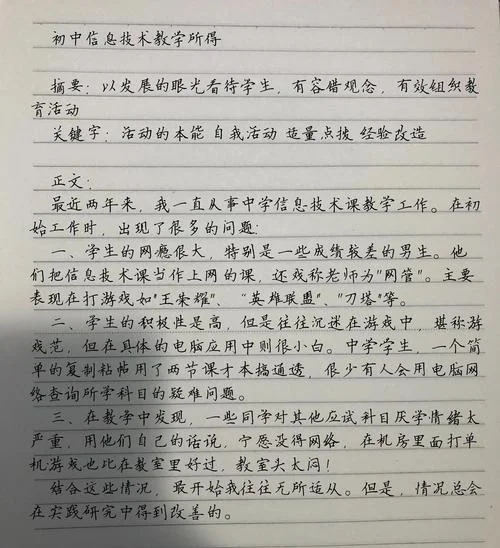 初中信息技术教学所得
摘要：以发展的眼光看待学生，有容错观念，有效组织教
育活动
关键字：活动的本能 自我活动 适量点拨 经验改造
正文：
最近两年来，我一直从事中学信息技术课教学工作。在初
始工作时，出现了很多的问题：
一、学生的网瘾很大，特别是一些成绩较差的男生。他
们把信息技术课当作上网的课，还戏称老师为"网管"。主要
表现在打游戏如"王荣耀"、"英雄联盟"、"刀塔"等。
二、学生的积极性是高，但是往往沉迷在游戏中，堪称游
戏范，但在具体的电脑应用中则很小白。中学学生，一个简
单的复制粘帖用了两节课才本搞通透，很少有人会用电脑网
络查询所学科目的疑难问题。
三、在教学中发现，一些同学对其他应试科目厌学情绪太
严重，用他们自己的话说，宁愿没得网络，在机房里面打单
机游戏也比在教室里好过，教室头太闷！
结合这些情况，最开始我往往无所适从。但是，情况总会
在实践研究中得到改善的。